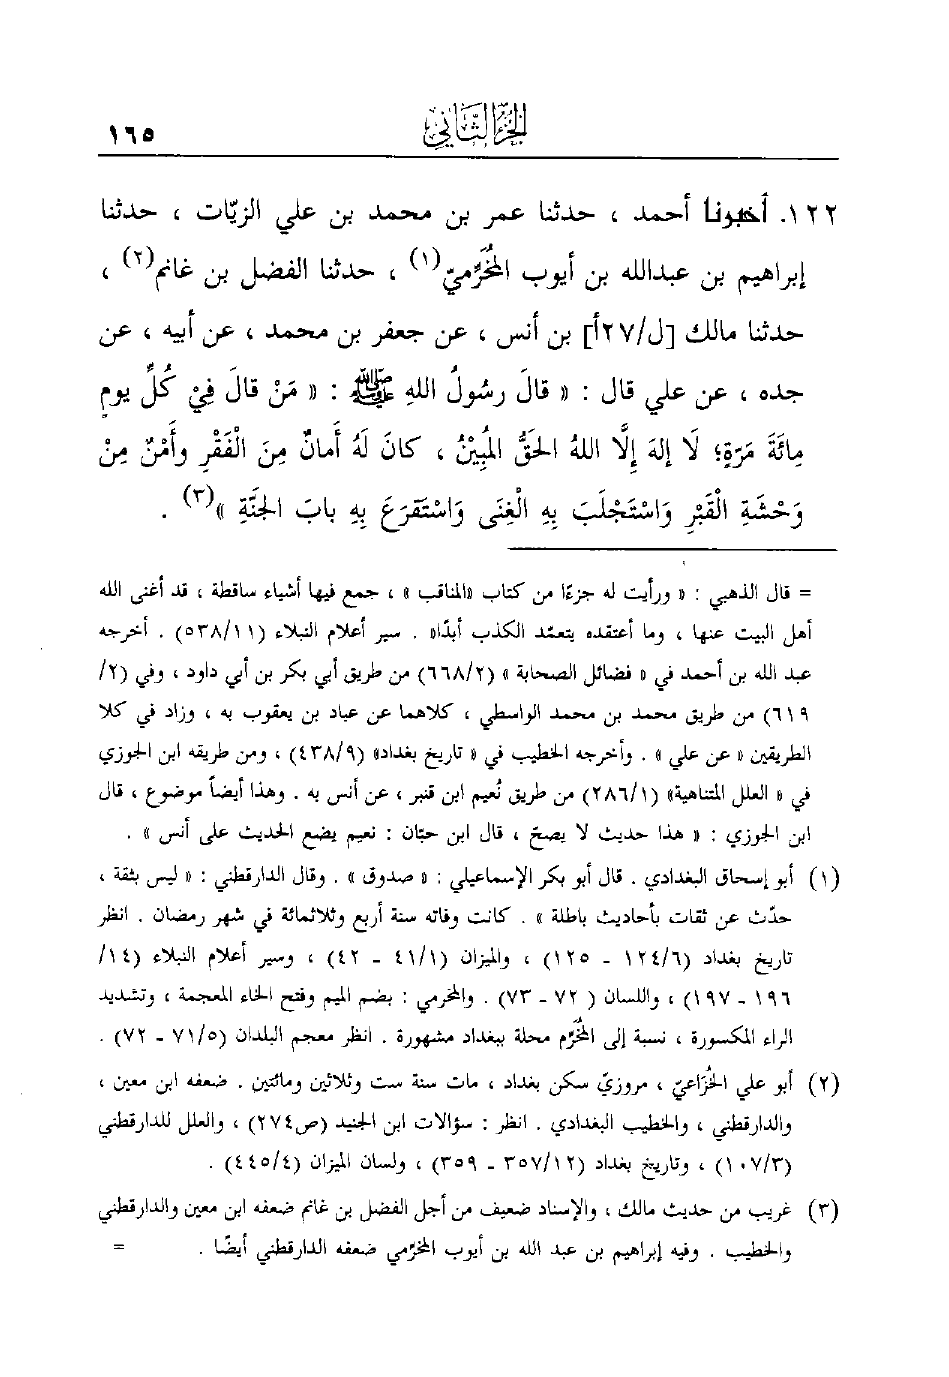 الجزء الثاني
١٦٥
١٢٢. أخبرنا أحمد ، حدثنا عمر بن محمد بن علي الزيّات ، حدثنا
إبراهيم بن عبدالله بن أيوب المُخَرِّميّ(١) ، حدثنا الفضل بن غانم(٢) ،
حدثنا مالك [ل/٢٧أ] بن أنس ، عن جعفر بن محمد ، عن أبيه ، عن
جده ، عن علي قال : « قالَ رسُولُ اللهِ ﷺ : « مَنْ قالَ فِيْ كُلِّ يومٍ
مِائَةَ مَرّةٍ؛ لَا إلهَ إِلَّا اللهُ الحَقُّ المُبِيْنُ ، كانَ لَهُ أَمانٌ مِنَ الْفَقْرِ وأَمْنٌ مِنْ
وَحْشَةِ الْقَبْرِ وَاسْتَجْلَبَ بِهِ الْغِنَى وَاسْتَقرَعَ بِهِ بابَ الجَنّةِ »(٣) .
= قال الذهبي : « ورأيت له جزءًا من كتاب «المناقب» ، جمع فيها أشياء ساقطة ، قد أغنى الله
أهل البيت عنها ، وما أعتقده يتعمّد الكذب أبدًا» . سير أعلام النبلاء (٥٣٨/١١) . أخرجه
عبد الله بن أحمد في « فضائل الصحابة » (٦٦٨/٢) من طريق أبي بكر بن أبي داود ، وفي (٢/
٦١٩) من طريق محمد بن محمد الواسطي ، كلاهما عن عباد بن يعقوب به ، وزاد في كلا
الطريقين « عن علي » . وأخرجه الخطيب في « تاريخ بغداد» (٤٣٨/٩) ، ومن طريقه ابن الجوزي
في « العلل المتناهية» (٢٨٦/١) من طريق نُعيم ابن قنبر ، عن أنس به . وهذا أيضاً موضوع ، قال
ابن الجوزي : « هذا حديث لا يصحّ ، قال ابن حبّان : نعيم يضع الحديث على أنس » .
(١) أبو إسحاق البغدادي . قال أبو بكر الإسماعيلي : « صدوق » . وقال الدارقطني : « ليس بثقة ،
حدّث عن ثقات بأحاديث باطلة » . كانت وفاته سنة أربع وثلاثمائة في شهر رمضان . انظر
تاريخ بغداد (١٢٤/٦ - ١٢٥) ، والميزان (٤١/١ - ٤٢) ، وسير أعلام النبلاء (١٤/
١٩٦ - ١٩٧) ، واللسان ( ٧٢ - ٧٣) . والمخرمي : بضم الميم وفتح الخاء المعجمة ، وتشديد
الراء المكسورة ، نسبة إلى المُخَرِّم محلة ببغداد مشهورة . انظر معجم البلدان (٧١/٥ - ٧٢) .
(٢) أبو علي الخُزاعيّ ، مروزيّ سكن بغداد ، مات سنة ست وثلاثين ومائتين . ضعفه ابن معين ،
والدارقطني ، والخطيب البغدادي . انظر : سؤالات ابن الجنيد (ص٢٧٤) ، والعلل للدارقطني
(١٠٧/٣) ، وتاريخ بغداد (٣٥٧/١٢ - ٣٥٩) ، ولسان الميزان (٤٤٥/٤) .
(٣) غريب من حديث مالك ، والإسناد ضعيف من أجل الفضل بن غانم ضعفه ابن معين والدارقطني
والخطيب . وفيه إبراهيم بن عبد الله بن أيوب المخرّمي ضعفه الدارقطني أيضًا . =